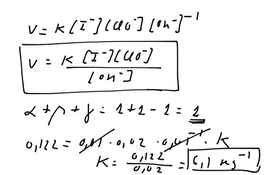 v = K [I⁻] [ClO⁻] [OH⁻]⁻¹
v = K [I⁻] [ClO⁻] / [OH⁻]
α + β + γ = 1 + 1 - 1 = 1
0,122 = 0,01 · 0,02 · 0,01⁻¹ · K
K = 0,122 / 0,02 = 6,1